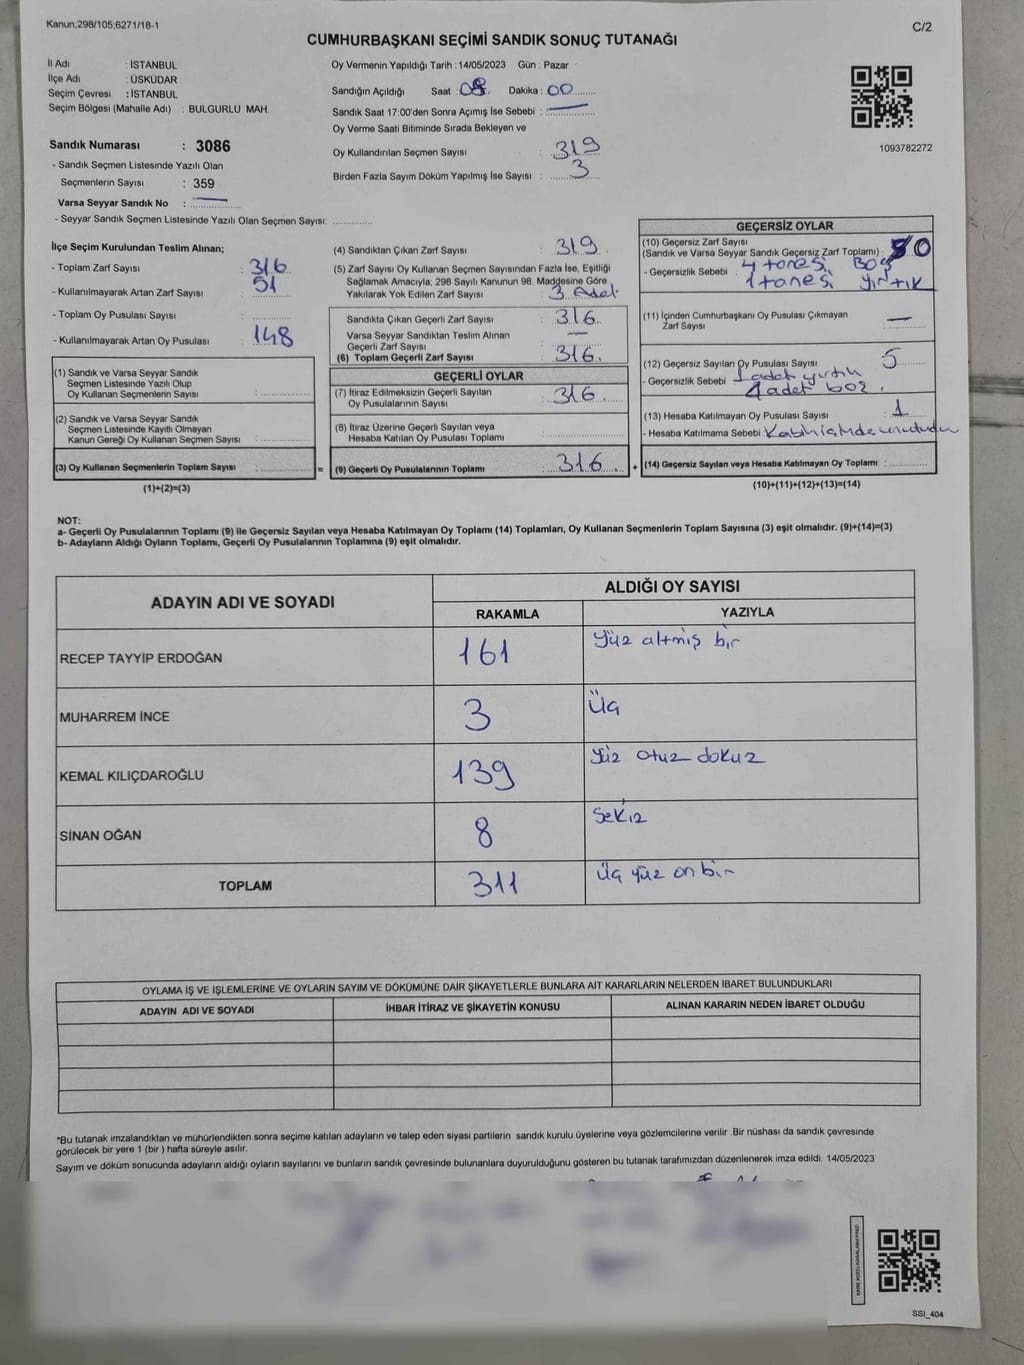 Kanun;298/105;6271/18-1
C/2
CUMHURBAŞKANI SEÇİMİ SANDIK SONUÇ TUTANAĞI
İl Adı : İSTANBUL
İlçe Adı : ÜSKÜDAR
Seçim Çevresi : İSTANBUL
Seçim Bölgesi (Mahalle Adı) : BULGURLU MAH.
Oy Vermenin Yapıldığı Tarih :14/05/2023 Gün : Pazar
Sandığın Açıldığı Saat : 08 Dakika : 00
Sandık Saat 17:00'den Sonra Açımış İse Sebebi : —
Oy Verme Saati Bitiminde Sırada Bekleyen ve
Oy Kullandırılan Seçmen Sayısı : 319
Birden Fazla Sayım Döküm Yapılmış İse Sayısı : 3
1093782272
Sandık Numarası : 3086
- Sandık Seçmen Listesinde Yazılı Olan
Seçmenlerin Sayısı : 359
Varsa Seyyar Sandık No : —
- Seyyar Sandık Seçmen Listesinde Yazılı Olan Seçmen Sayısı:
İlçe Seçim Kurulundan Teslim Alınan;
- Toplam Zarf Sayısı : 316
- Kullanılmayarak Artan Zarf Sayısı : 51
- Toplam Oy Pusulası Sayısı :
- Kullanılmayarak Artan Oy Pusulası : 148
(1) Sandık ve Varsa Seyyar Sandık
Seçmen Listesinde Yazılı Olup
Oy Kullanan Seçmenlerin Sayısı :
(2) Sandık ve Varsa Seyyar Sandık
Seçmen Listesinde Kayıtlı Olmayan
Kanun Gereği Oy Kullanan Seçmen Sayısı :
(3) Oy Kullanan Seçmenlerin Toplam Sayısı : =
(1)+(2)=(3)
(4) Sandıktan Çıkan Zarf Sayısı : 319
(5) Zarf Sayısı Oy Kullanan Seçmen Sayısından Fazla İse, Eşitliği
Sağlamak Amacıyla; 298 Sayılı Kanunun 98. Maddesine Göre
Yakılarak Yok Edilen Zarf Sayısı : 3 Adet
Sandıkta Çıkan Geçerli Zarf Sayısı : 316
Varsa Seyyar Sandıktan Teslim Alınan
Geçerli Zarf Sayısı : —
(6) Toplam Geçerli Zarf Sayısı : 316.
GEÇERLİ OYLAR
(7) İtiraz Edilmeksizin Geçerli Sayılan
Oy Pusulalarının Sayısı : 316
(8) İtiraz Üzerine Geçerli Sayılan veya
Hesaba Katılan Oy Pusulası Toplamı :
(9) Geçerli Oy Pusulalarının Toplamı : 316 +
GEÇERSİZ OYLAR
(10) Geçersiz Zarf Sayısı
(Sandık ve Varsa Seyyar Sandık Geçersiz Zarf Toplamı) : 0
- Geçersizlik Sebebi : 4 tanesi Boş
1 tanesi yırtık
(11) İçinden Cumhurbaşkanı Oy Pusulası Çıkmayan
Zarf Sayısı : —
(12) Geçersiz Sayılan Oy Pusulası Sayısı : 5
- Geçersizlik Sebebi 1 adet yırtık
4 adet boş.
(13) Hesaba Katılmayan Oy Pusulası Sayısı : 1
- Hesaba Katılmama Sebebi
(14) Geçersiz Sayılan veya Hesaba Katılmayan Oy Toplamı :
(10)+(11)+(12)+(13)=(14)
NOT:
a- Geçerli Oy Pusulalarının Toplamı (9) ile Geçersiz Sayılan veya Hesaba Katılmayan Oy Toplamı (14) Toplamları, Oy Kullanan Seçmenlerin Toplam Sayısına (3) eşit olmalıdır. (9)+(14)=(3)
b- Adayların Aldığı Oyların Toplamı, Geçerli Oy Pusulalarının Toplamına (9) eşit olmalıdır.
ADAYIN ADI VE SOYADI
ALDIĞI OY SAYISI
RAKAMLA YAZIYLA
RECEP TAYYİP ERDOĞAN 161 Yüz altmış bir
MUHARREM İNCE 3 Üç
KEMAL KILIÇDAROĞLU 139 Yüz otuz dokuz
SİNAN OĞAN 8 Sekiz
TOPLAM 311 Üç yüz on bir
OYLAMA İŞ VE İŞLEMLERİNE VE OYLARIN SAYIM VE DÖKÜMÜNE DAİR ŞİKAYETLERLE BUNLARA AİT KARARLARIN NELERDEN İBARET BULUNDUKLARI
ADAYIN ADI VE SOYADI İHBAR İTİRAZ VE ŞİKAYETİN KONUSU ALINAN KARARIN NEDEN İBARET OLDUĞU
*Bu tutanak imzalandıktan ve mühürlendikten sonra seçime katılan adayların ve talep eden siyasi partilerin sandık kurulu üyelerine veya gözlemcilerine verilir .Bir nüshası da sandık çevresinde
görülecek bir yere 1 (bir ) hafta süreyle asılır.
Sayım ve döküm sonucunda adayların aldığı oyların sayılarını ve bunların sandık çevresinde bulunanlara duyurulduğunu gösteren bu tutanak tarafımızdan düzenlenerek imza edildi. 14/05/2023
KARE KODU KARALAMAYINIZ!
SSI_404